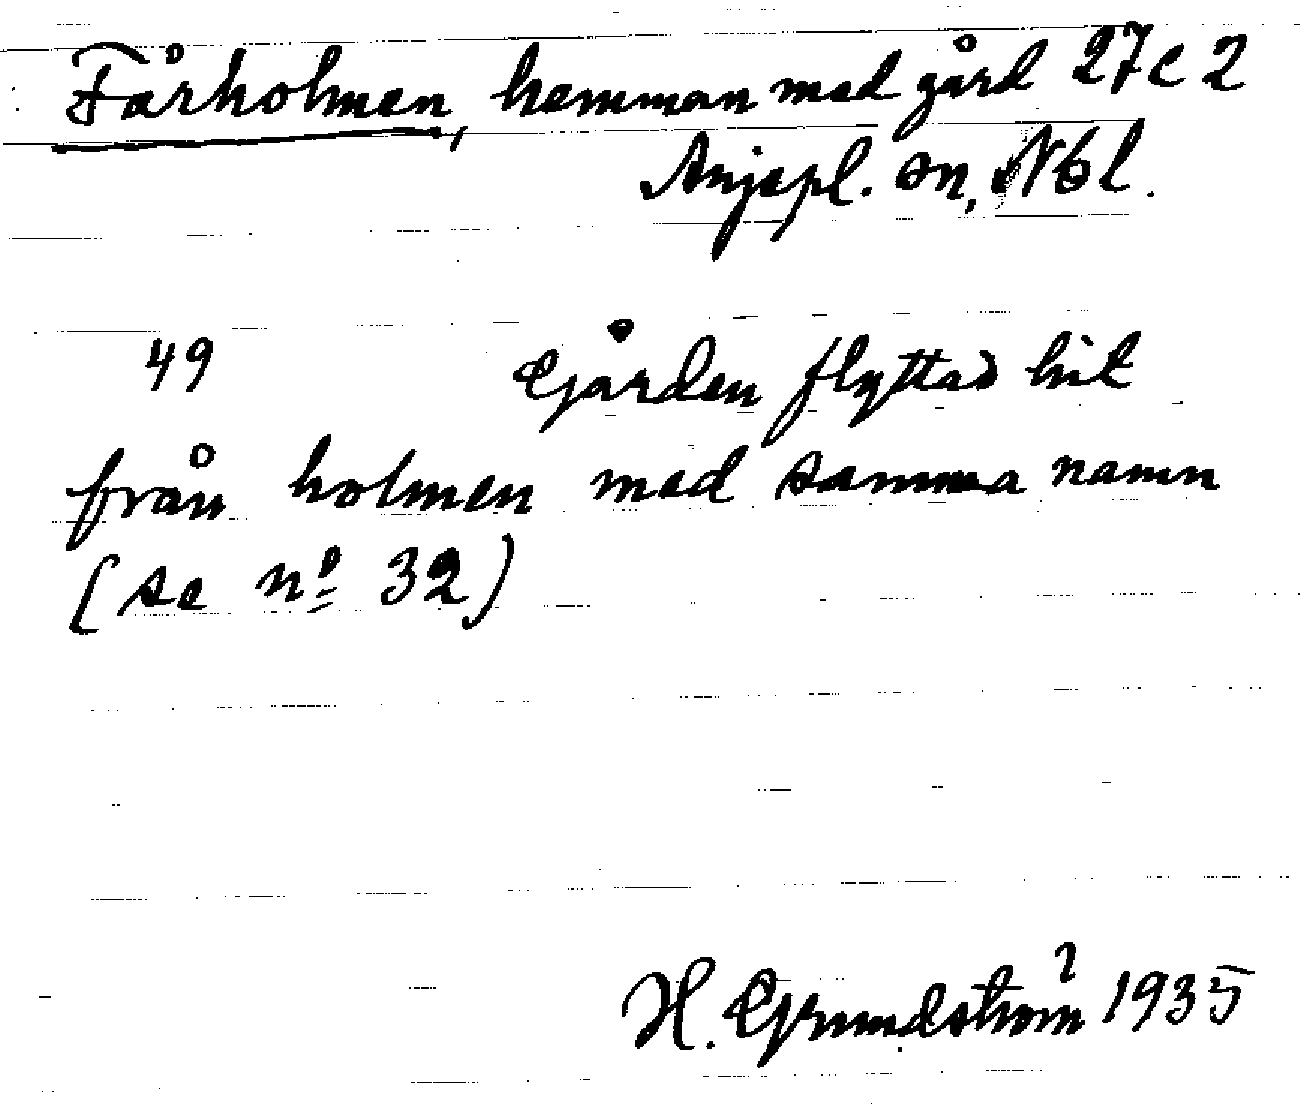 Fårholmen, hemman med gård 27C2
Arjepl. sn, Nbl.
49 Gården flyttad hit
från holmen med samma namn
(se nº 32)
H. Grundström 1935